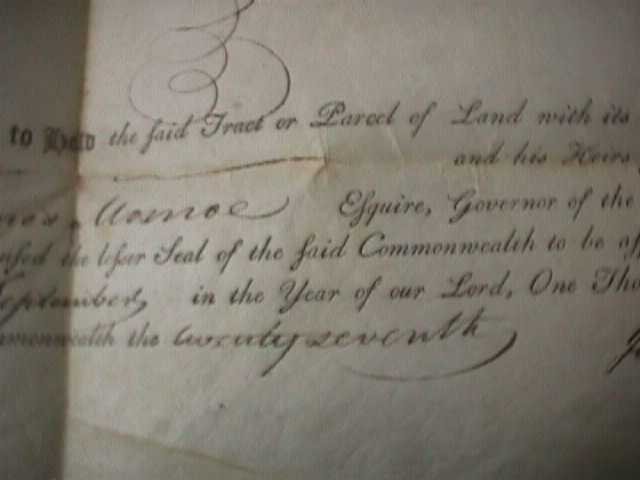 to Hold the ſaid Tract or Parcel of Land with its
and his Heirs
Monroe Eſquire, Governor of the
the leſſer Seal of the ſaid Commonwealth to be aff
September in the Year of our Lord, One Thou
mmonwealth the twenty seventh